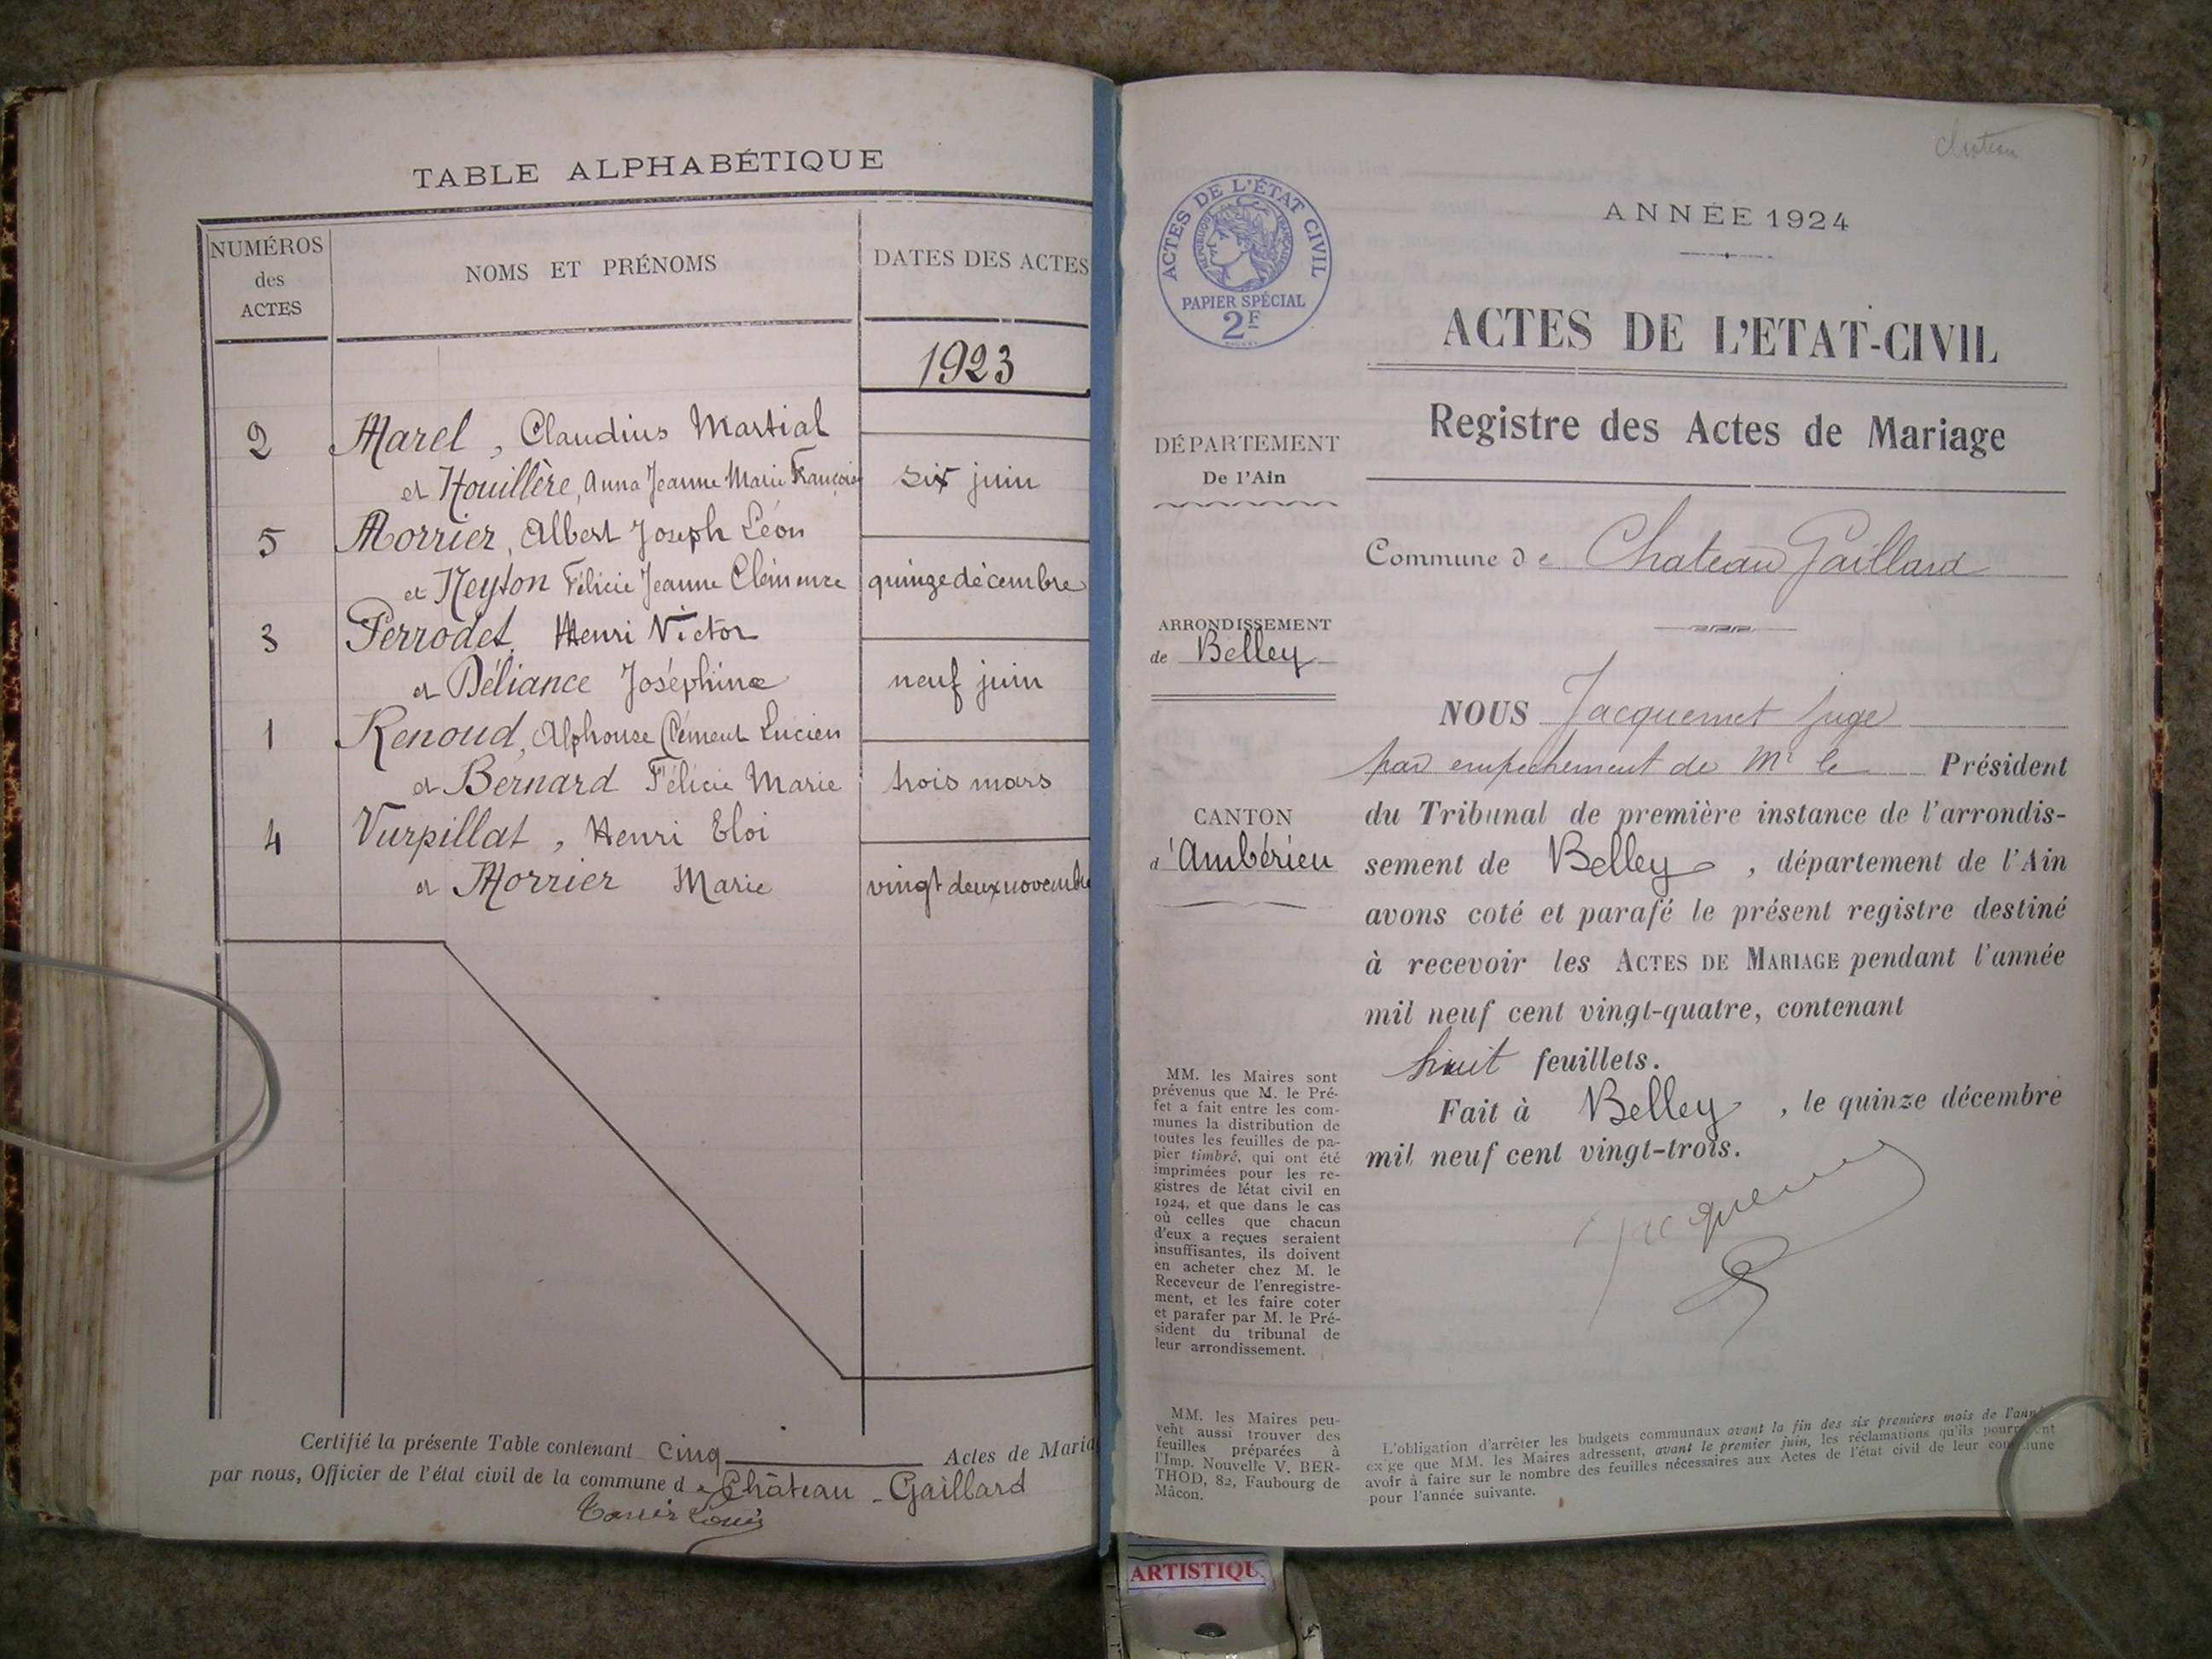 TABLE ALPHABÉTIQUE
NUMÉROS
des
ACTES
NOMS ET PRÉNOMS
DATES DES ACTES
1923
2 Marel, Claudius Martial
et Houillère, Anna Jeanne Marie Françoise six juin
5 Morrier, Albert Joseph Léon
et Neyton Félicie Jeanne Clémence quinze décembre
3 Perrodet, Henri Victor
et Déliance Joséphine neuf juin
1 Renoud, Alphonse Clément Lucien
et Bernard Félicie Marie trois mars
4 Vurpillat, Henri Eloi
et Morrier Marie vingt deux novembre
Certifié la présente Table contenant cinq Actes de Maria
par nous, Officier de l'état civil de la commune de Château-Gaillard
Louis
château
ACTES DE L'ÉTAT CIVIL
RÉPUBLIQUE FRANÇAISE
PAPIER SPÉCIAL
2F
ANNÉE 1924
ACTES DE L'ETAT-CIVIL
Registre des Actes de Mariage
DÉPARTEMENT
De l'Ain
Commune de Chateau Gaillard
ARRONDISSEMENT
de Belley
CANTON
d'Ambérieu
NOUS Jacquemet Juge
par empechement de Mr le Président
du Tribunal de première instance de l'arrondis-
sement de Belley, département de l'Ain
avons coté et parafé le présent registre destiné
à recevoir les ACTES DE MARIAGE pendant l'année
mil neuf cent vingt-quatre, contenant
huit feuillets.
Fait à Belley, le quinze décembre
mil neuf cent vingt-trois.
MM. les Maires sont
prévenus que M. le Pré-
fet a fait entre les com-
munes la distribution de
toutes les feuilles de pa-
pier timbré, qui ont été
imprimées pour les re-
gistres de létat civil en
1924, et que dans le cas
où celles que chacun
d'eux a reçues seraient
insuffisantes, ils doivent
en acheter chez M. le
Receveur de l'enregistre-
ment, et les faire coter
et parafer par M. le Pré-
sident du tribunal de
leur arrondissement.
MM. les Maires peu-
vent aussi trouver des
feuilles préparées à
l'Imp. Nouvelle V. BER-
THOD, 82, Faubourg de
Mâcon.
L'obligation d'arrêter les budgets communaux avant la fin des six premiers mois de l'anné
exige que MM. les Maires adressent, avant le premier juin, les réclamations qu'ils pourraient
avoir à faire sur le nombre des feuilles nécessaires aux Actes de l'état civil de leur commune
pour l'année suivante.
ARTISTIQU